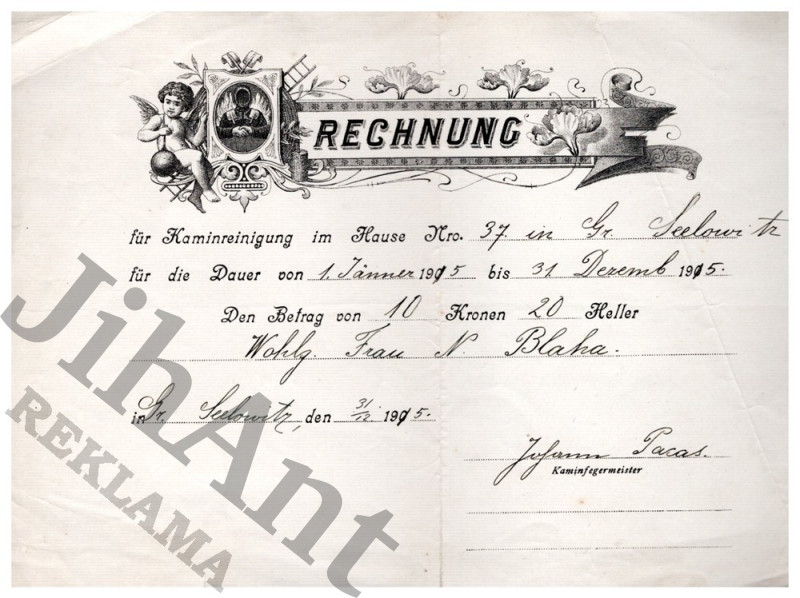 RECHNUNG
für Kaminreinigung im Hause Nro. 37 in Gr. Seelowitz
für die Dauer von 1. Jänner 1915 bis 31 Dezemb 1915.
Den Betrag von 10 Kronen 20 Heller
Wohlg. Frau N. Blaha.
in Gr. Seelowitz, den 31/12. 1915.
Johann Pacas.
Kaminfegermeister
JihAnt
REKLAMA